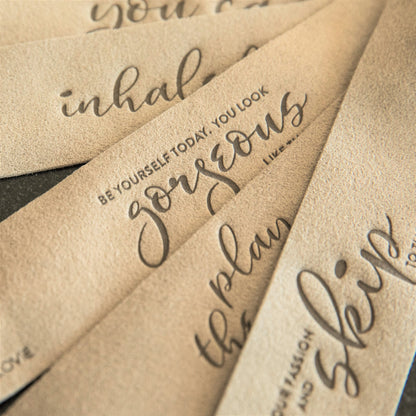 you ca
inhale
BE YOURSELF TODAY. YOU LOOK
gorgeous
LIKE TH
play
the
OUR PASSION
AND
skip
OVIE.